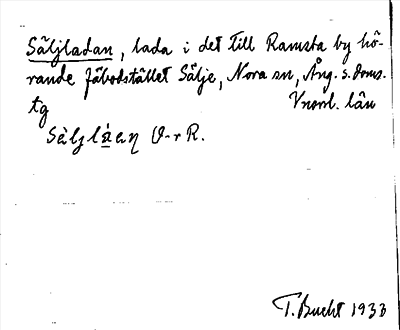 Säljladan, lada i det till Ramsta by hö-
rande fäbodstället Sälje, Nora sn, Ång. s. doms.
tg Vnorrl. län
T. Bucht 1933